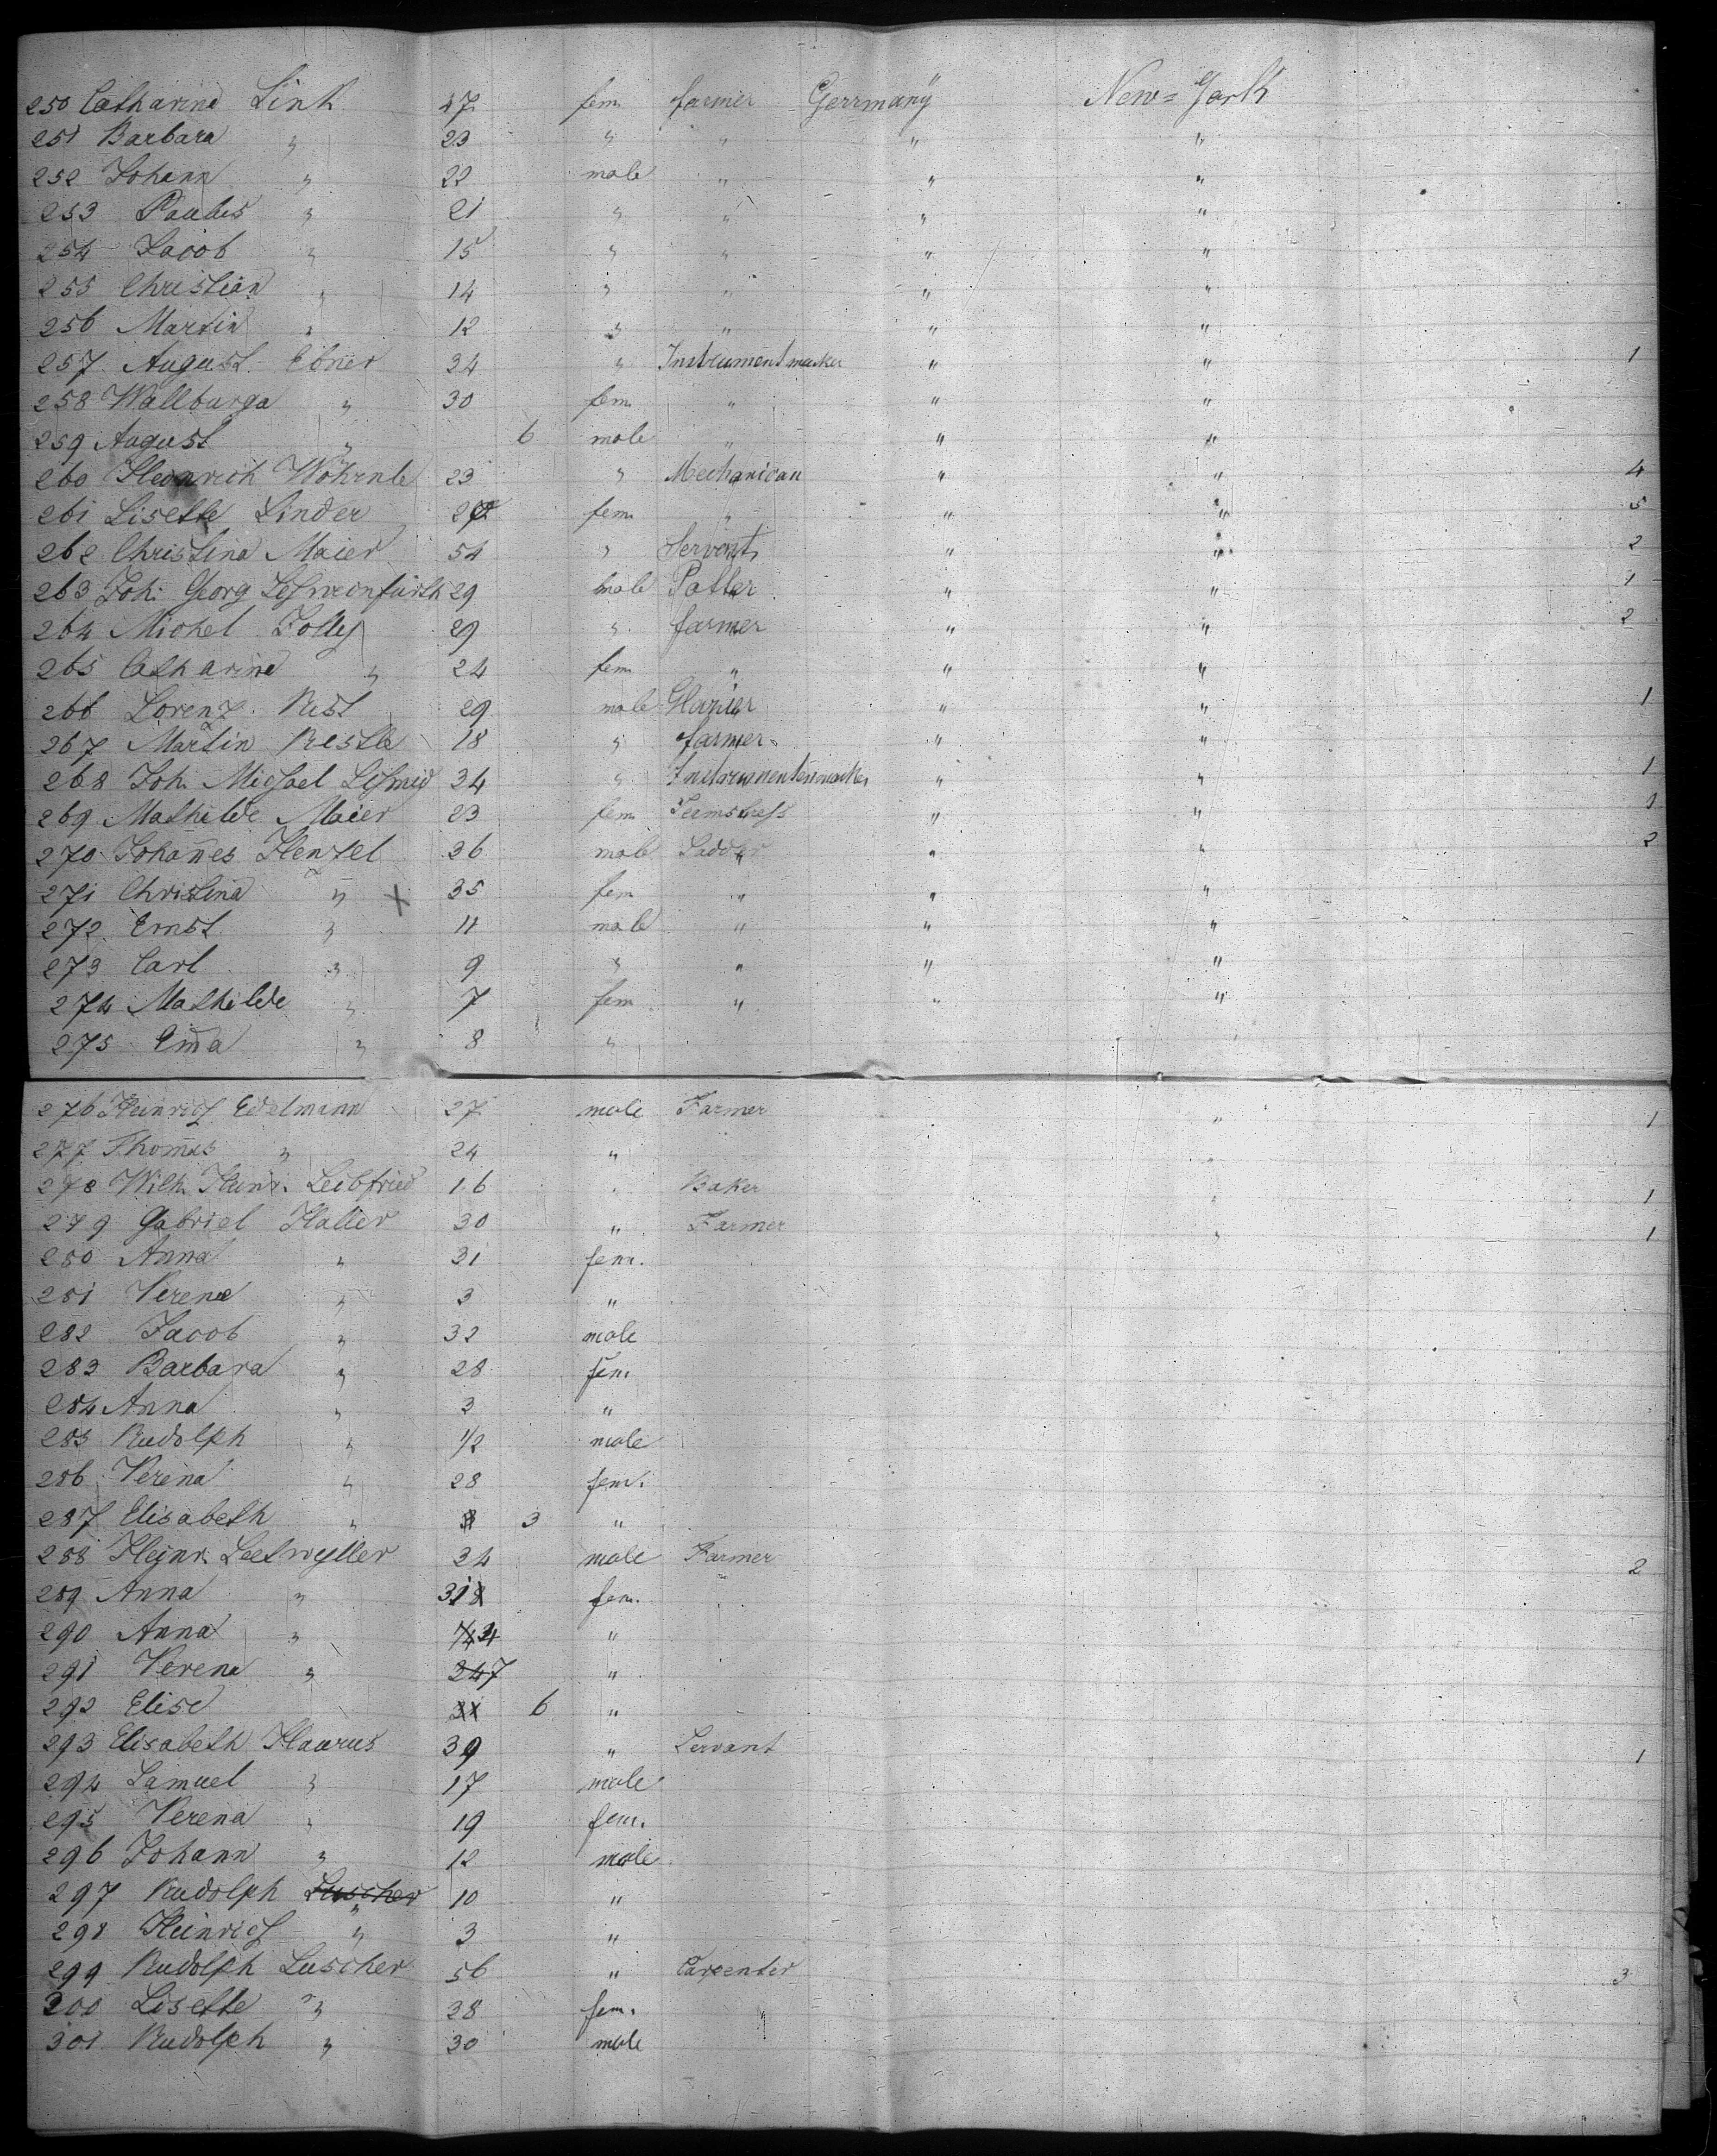 250 Catharina Link 47 fem. farmer Gerrmanÿ New=York
251 Barbara " 23 " " " "
252 Johann " 22 male " " "
253 Paulus " 21 " " " "
254 Jacob " 15 " " " "
255 Christian " 14 " " " "
256 Martin " 12 " " " "
257 August Ebner 34 " Instrumentmacker " " 1
258 Wallburga " 30 fem. " " "
259 August " 6 male " " "
260 Heinrich Wöhrnle 23 " Mechanican " " 4
261 Lisette Linder fem. " " " 5
262 Christina Maier 54 " Servent " " 2
263 Joh. Georg 29 male Potter " " 1
264 Michel Jolly 29 " farmer " " 2
265 Catharina " 24 fem. " " "
266 Lorenz Rist 29 male Glazier " " 1
267 Martin Restle 18 " farmer " "
268 Joh. Michael Schmid 34 " Instrumentenmacker " " 1
269 Mathilde Maier 23 fem. Seemstress " " 1
270 Johañes Henzel 36 male " " 2
271 Christina " X 35 fem " " "
272 Ernst " 11 male " " "
273 Carl " 9 " " " "
274 Mathilde " 7 fem " " "
275 Em̃a " 8 "
276 Heinrich Edelmann 27 male Farmer " 1
277 Thomas " 24 " "
278 Wilh. Heinr. Leibfried 16 " Baker " 1
279 Gabriel Haller 30 " Farmer " 1
280 Anna " 31 fem.
281 Verena " 3 "
282 Jacob " 32 male
283 Barbara " 28 fem.
284 Anna " 3 "
285 Rudolph " 1/2 male
286 Verena " 28 fem.
287 Elisabeth " 3 "
288 Heinr. Leetwyller 34 male Farmer 2
289 Anna " 31 fem.
290 Anna " "
291 Verena " 7 "
292 Elise 6 "
293 Elisabeth Haurus 39 " Servant 1
294 Samuel " 17 male
295 Verena " 19 fem.
296 Johann " 12 male
297 Rudolph Luscher " 10 "
298 Heinrich " 3 "
299 Rudolph Luscher 56 " Carpenter 3
300 Lisette " 28 fem.
301 Rudolph " 30 male